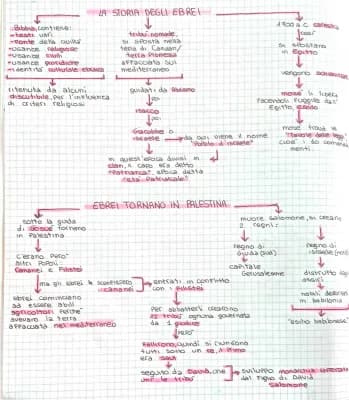 LA STORIA DEGLI EBREI
Bibbia, contiene:
•testi vari
•fonte della civiltà
•usanze religiose
•usanze civili
•usanze quotidiane
•identità culturale ebraica
ritenuta da alcuni
discutibile, per l'influenza
di criteri religiosi
tribù nomade,
si sposta nella
terra di Canaan/
terra promessa
affacciata sul
mediterraneo
guidati da Abramo
poi
Isacco
poi
Giacobbe o
Israele
da qui viene il nome
"Popolo d'Israele"
in quest'epoca divisi in
clan, il capo era detto
"Patriarca", epoca detta
"età Patriarcale"
1700 a.C. carestia
così
si spostano
in Egitto
vengono
mosè li libera
facendoli fuggire dall'
Egitto, esodo
mosè trova le
"tavole della legge"
cioè i 10 comanda
menti.
EBREI TORNANO IN PALESTINA
sotto la guida
di Giosuè tornano
in Palestina
C'erano però
altri Popoli
Cananei e Filistei
ma gli ebrei li sconfissero
i cananei
entrati in conflitto
con i filistei
ebrei cominciano
ad essere abili
agricoltori perchè
avevano la terra
affacciata nel mediterraneo
Per abbatterli crearono
12 tribù ognuna governata
da 1 giudice
però
fallirono, quindi si riunirono
tutti sotto un re, il primo
era Saul
seguito da David, che
unì le tribù
sviluppò monarchia
dal figlio di David
Salomone
muore Salomone, si creano
2 regni:
regno di
Giuda (sud)
capitale
Gerusalemme
regno di
Israele (nord)
distrutto
assiri
notabili
in babilonia
"esilio babilonese"